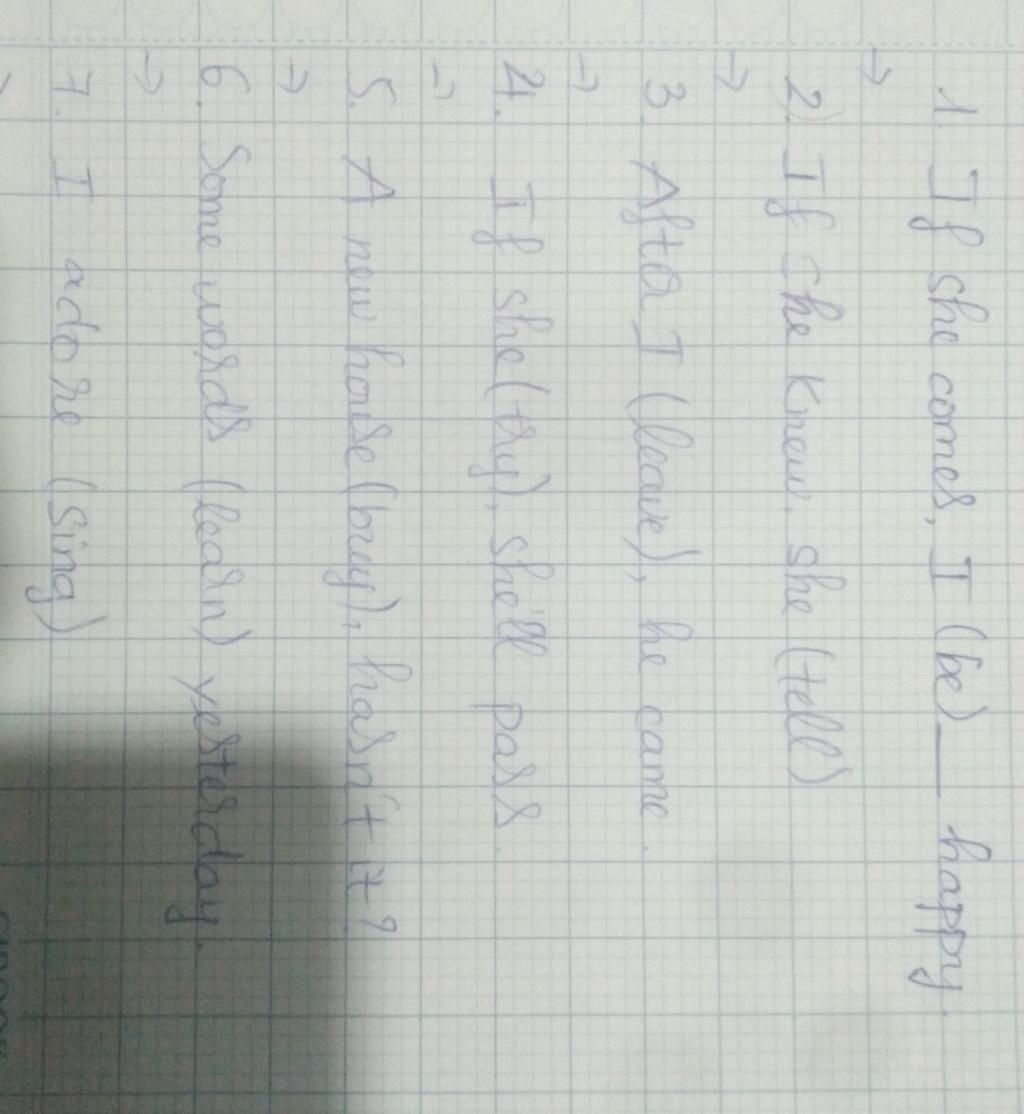 1. If she comes, I (be) ___ happy.
→
2. If she knew, she (tell)
→
3. After I (leave), he came.
→
4. If she (try), she'll pass.
→
5. A new house (buy), hasn't it?
→
6. Some words (learn) yesterday.
→
7. I adore (sing)
→